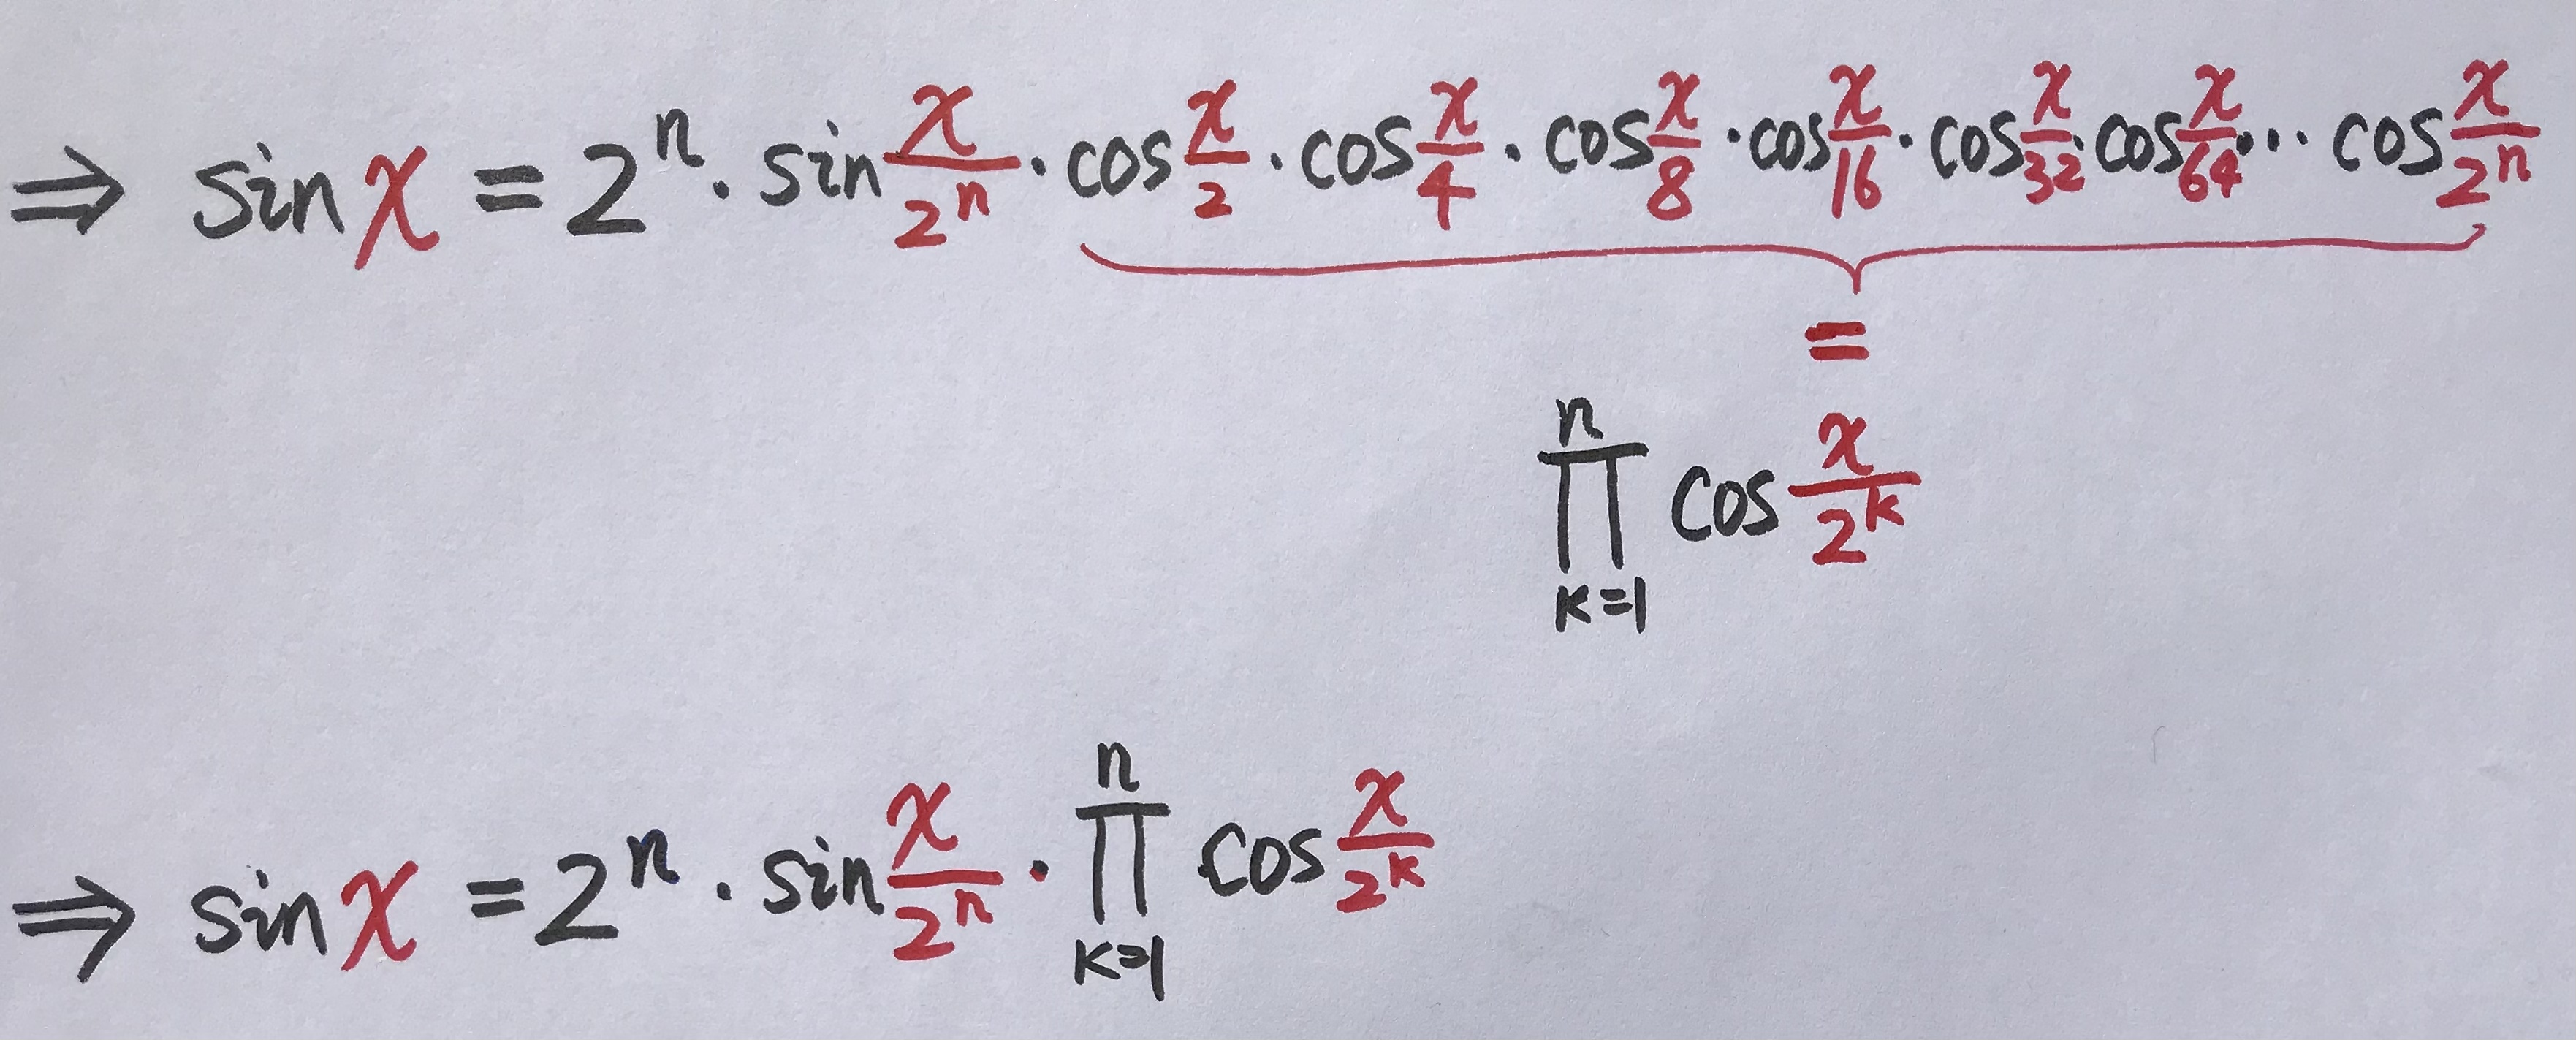 ⇒ sin x = 2ⁿ · sin x/2ⁿ · cos x/2 · cos x/4 · cos x/8 · cos x/16 · cos x/32 · cos x/64 ··· cos x/2ⁿ
=
n ∏ k=1 cos x/2ᵏ
⇒ sin x = 2ⁿ · sin x/2ⁿ · n ∏ k=1 cos x/2ᵏ